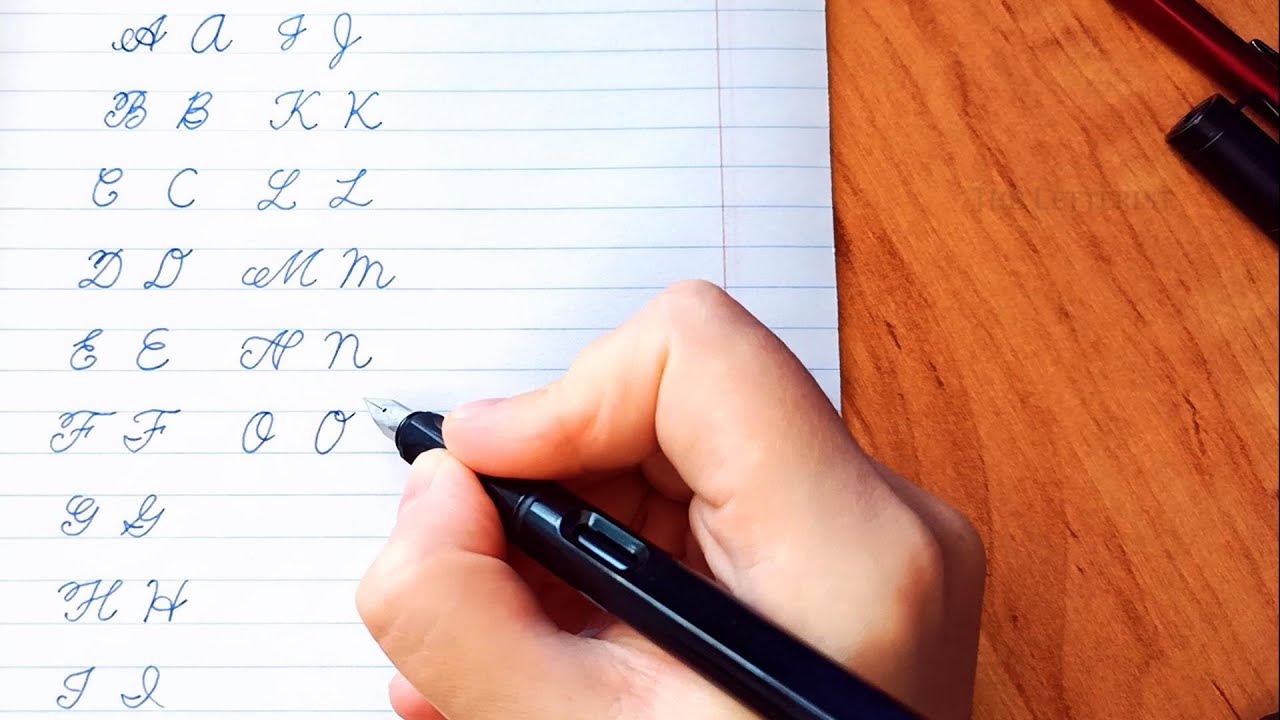 A A J J
B B K K
C C L L
D D M M
E E N N
F F O O
G G
H H
I I
The Letterist